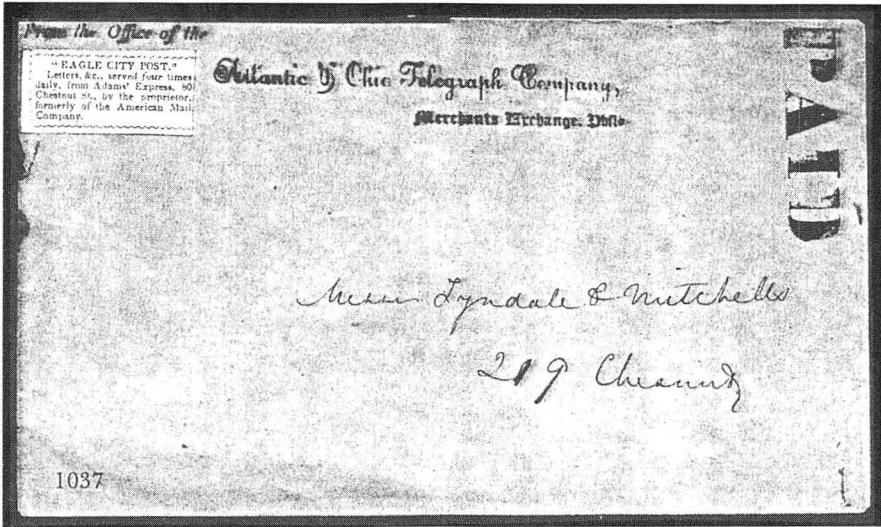 From the Office of the
"EAGLE CITY POST."
Letters, &c., served four times
daily, from Adams' Express, 80
Chestnut St., by the proprietor,
formerly of the American Mail
Company.
Atlantic & Ohio Telegraph Company,
Merchants Exchange, Phila
PAID
Messrs Tyndale & Mitchells
219 Chesnut
1037